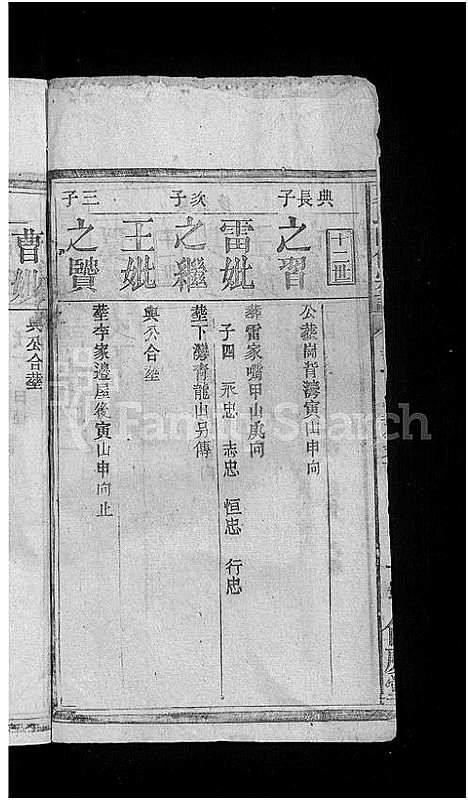 十二世
典長子
之習
公葬崗背灣寅山申向
雷妣
葬雷家嘴甲山庚向
子四 永忠 志忠 恒忠 行忠
次子
之繼
葬下灣青龍山另傳
王妣
與公合葬
三子
之贒
葬李家邉屋後寅山申向止
曹妣
與公合葬
FamilySearch